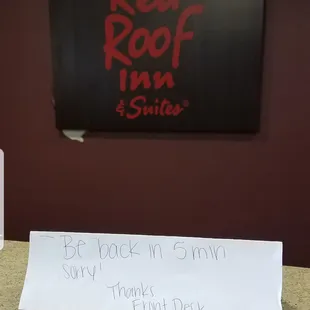 Red
Roof
Inn
& Suites®
Be back in 5 min
sorry!
Thanks
Front Desk